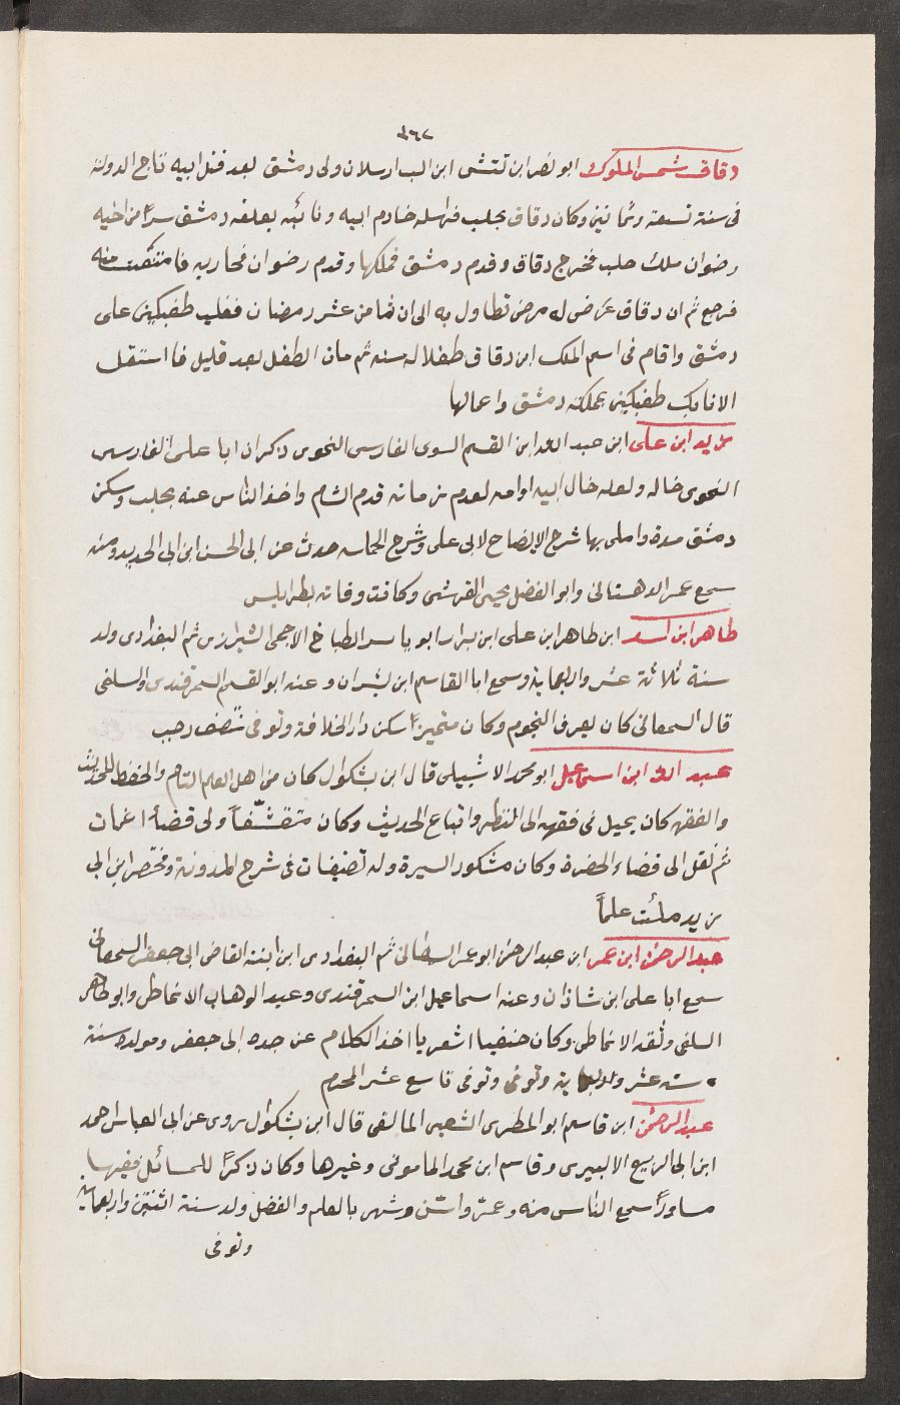 ٣٦٧
دقاق شمس الملوك ابو نصر ابن تتش ابن الب ارسلان ولى دمشق بعد قتل ابيه تاج الدولة
فى سنة تسعة وثمانين وكان دقاق بحلب فراسله خادم ابيه ونائبه بقلعه دمشق سرًا من اخيه
رضوان ملك حلب فخرج دقاق وقدم دمشق فملكها وقدم رضوان فحاربه فا منه
فرجع ثم ان دقاق عرض له مرض تطاول به الى ان ثامن عشر رمضان فغلب طغتكين على
دمشق واقام فى اسم الملك ابن دقاق طفلا له سنه ثم مات الطفل بعد قليل فا استقل
الاتابك طغتكين بمملكة دمشق واعمالها
زيد ابن على ابن عبد الله ابن القسم السوى الفارسى النحوى ذكر ان ابا على الفارسى
النحوى خاله ولعله خال ابيه او امه لعدم زمانه قدم الشام واخذ الناس عنه بحلب وسكن
دمشق مدة واملى بها شرح الايضاح لابى على وشرح الحماسه حدث عن ابى الحسن ابن ابى الحديد ومنه
سمع عمر الدهستانى وابو الفضل يحيى القرشى وكانت وفاته بطرابلس
طاهر ابن اسد ابن طاهر ابن على ابن ابو ياسر الطباخ الشيرازى ثم البغدادى ولد
سنة ثلاثة عشر واربعماية وسمع ابا القاسم ابن بشران وعنه ابو القسم السمرقندى والسلفى
قال السمعانى كان يعرف النجوم وكان منجمًا سكن دار الخلافة وتوفى نتصف رجب
عبد الله ابن اسماعيل ابو محمد الاشبيلى قال ابن بشكوال كان من اهل العلم التام والحفظ للحديث
والفقه كان يميل فى فقهه الى النظر واتباع الحديث وكان متقشفاً ولى قضاء اغمات
ثم نقل الى قضاء الحضرة وكان مشكور السيرة وله تصنيفات فى شرح المدونة ومختصر ابن ابى
زيد ملئت علماً
عبد الرحمن ابن عمر ابن عبد الرحمن ابو عمر السمنانى ثم البغدادى ابن ابنة القاضى ابى جعفر السمنانى
سمع ابا على ابن شاذان وعنه اسماعيل ابن السمرقندى وعبد الوهاب الانماطى وابو طاهر
السلفى وثقه الانماطى وكان حنفيا اشعريا اخذ الكلام عن جده ابى جعفر ومولده سنة
ستة عشر واربعماية وتوفى وتوفى تاسع عشر المحرم
عبد الرحمن ابن قاسم ابو المطرى الشعبى المالقى قال ابن بشكوال روى عن ابى العباس احمد
ابن ابى الربيع الالبيرى وقاسم ابن محمد المامونى وغيرها وكان ذكرًا للمسائل فقيها
مساورًا سمع الناس منه وعمر واسن وشهر بالعلم والفضل ولد سنة اثنتين واربعماية
وتوفى